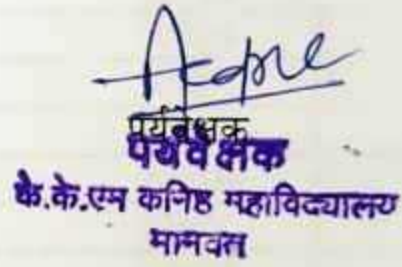 पर्यवेक्षक
पर्यवेक्षक
के.के.एम कनिष्ठ महाविद्यालय
मानवत